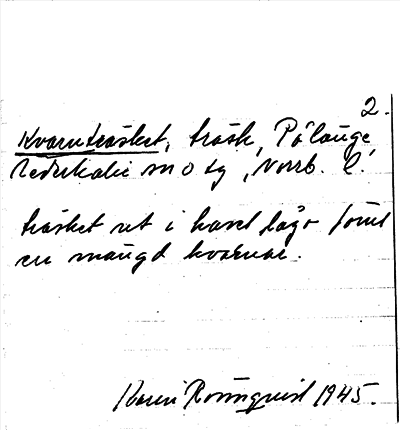 2.
Kvarnträsket, träsk, Pålänge
Nederkalix sn o tg, Norrb. l.
träsket ut i havet lågo förut
en mängd kvarnar.
Karin Rönnquist 1945.